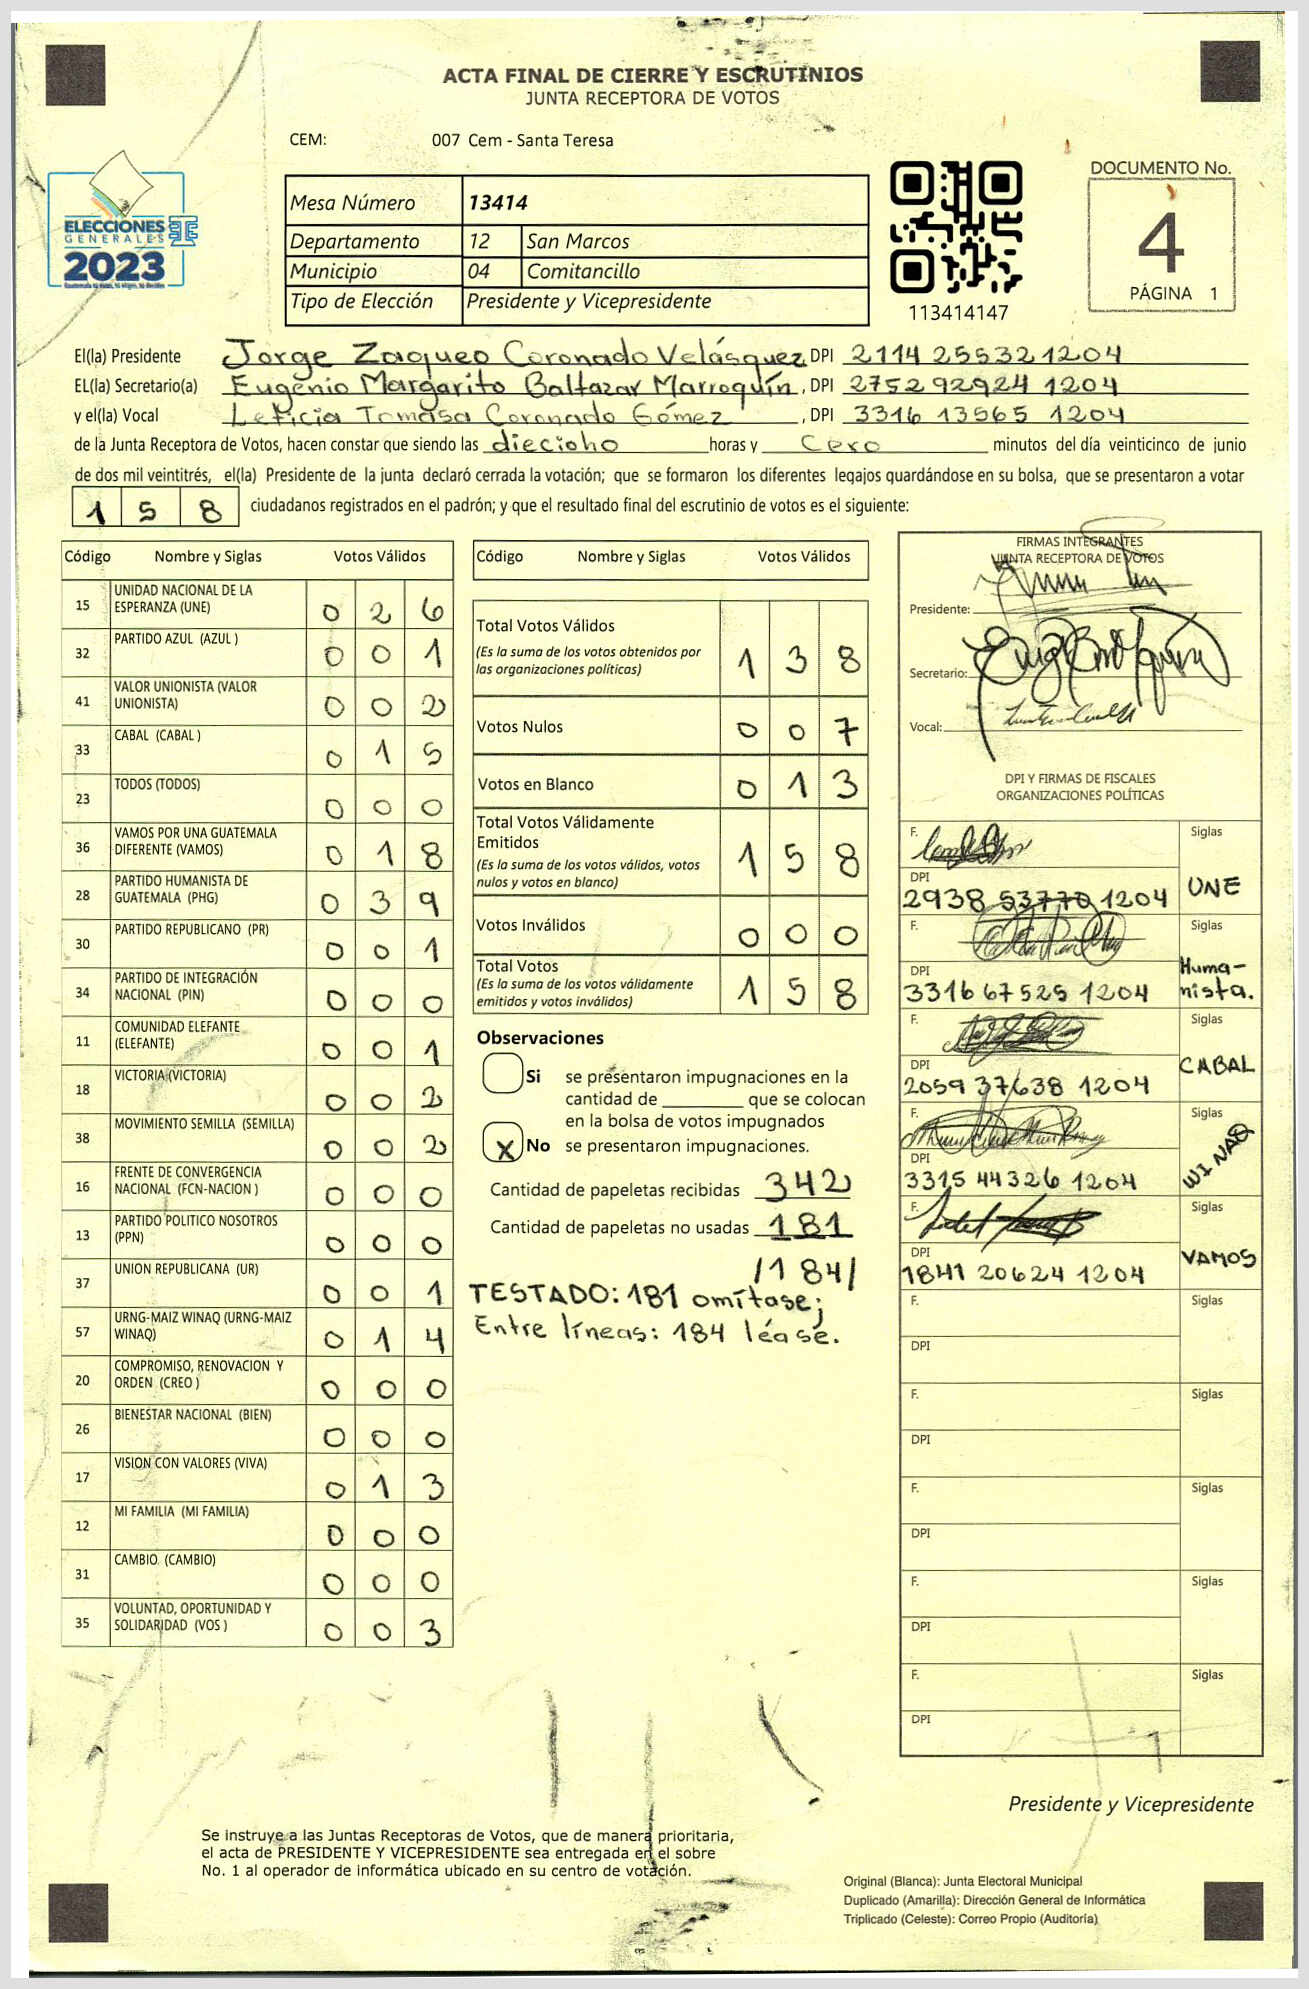 ACTA FINAL DE CIERRE Y ESCRUTINIOS
JUNTA RECEPTORA DE VOTOS
CEM: 007 Cem - Santa Teresa
ELECCIONES
GENERALES
2023
Mesa Número 13414
Departamento 12 San Marcos
Municipio 04 Comitancillo
Tipo de Elección Presidente y Vicepresidente
113414147
DOCUMENTO No.
4
PÁGINA 1
El(la) Presidente Jorge Zaqueo Coronado Velásquez DPI 2114 25532 1204
EL(la) Secretario(a) Eugenio Margarito Baltazar Marroquín, DPI 2752 92924 1204
y el(la) Vocal Leticia Tomasa Coronado Gómez, DPI 3316 13565 1204
de la Junta Receptora de Votos, hacen constar que siendo las diecioho horas y Cero minutos del día veinticinco de junio
de dos mil veintitrés, el(la) Presidente de la junta declaró cerrada la votación; que se formaron los diferentes legajos guardándose en su bolsa, que se presentaron a votar
158 ciudadanos registrados en el padrón; y que el resultado final del escrutinio de votos es el siguiente:
Código Nombre y Siglas Votos Válidos
15 UNIDAD NACIONAL DE LA ESPERANZA (UNE) 0 2 6
32 PARTIDO AZUL (AZUL ) 0 0 1
41 VALOR UNIONISTA (VALOR UNIONISTA) 0 0 2
33 CABAL (CABAL ) 0 1 5
23 TODOS (TODOS) 0 0 0
36 VAMOS POR UNA GUATEMALA DIFERENTE (VAMOS) 0 1 8
28 PARTIDO HUMANISTA DE GUATEMALA (PHG) 0 3 9
30 PARTIDO REPUBLICANO (PR) 0 0 1
34 PARTIDO DE INTEGRACIÓN NACIONAL (PIN) 0 0 0
11 COMUNIDAD ELEFANTE (ELEFANTE) 0 0 1
18 VICTORIA (VICTORIA) 0 0 2
38 MOVIMIENTO SEMILLA (SEMILLA) 0 0 2
16 FRENTE DE CONVERGENCIA NACIONAL (FCN-NACION ) 0 0 0
13 PARTIDO POLITICO NOSOTROS (PPN) 0 0 0
37 UNION REPUBLICANA (UR) 0 0 1
57 URNG-MAIZ WINAQ (URNG-MAIZ WINAQ) 0 1 4
20 COMPROMISO, RENOVACION Y ORDEN (CREO ) 0 0 0
26 BIENESTAR NACIONAL (BIEN) 0 0 0
17 VISION CON VALORES (VIVA) 0 1 3
12 MI FAMILIA (MI FAMILIA) 0 0 0
31 CAMBIO (CAMBIO) 0 0 0
35 VOLUNTAD, OPORTUNIDAD Y SOLIDARIDAD (VOS ) 0 0 3
Código Nombre y Siglas Votos Válidos
Total Votos Válidos
(Es la suma de los votos obtenidos por
las organizaciones políticas) 1 3 8
Votos Nulos 0 0 7
Votos en Blanco 0 1 3
Total Votos Válidamente
Emitidos
(Es la suma de los votos válidos, votos
nulos y votos en blanco) 1 5 8
Votos Inválidos 0 0 0
Total Votos
(Es la suma de los votos válidamente
emitidos y votos inválidos) 1 5 8
Observaciones
Si se presentaron impugnaciones en la
cantidad de ________ que se colocan
en la bolsa de votos impugnados
X No se presentaron impugnaciones.
Cantidad de papeletas recibidas 342
Cantidad de papeletas no usadas 181
/184/
TESTADO: 181 omítase;
Entre líneas: 184 léase.
FIRMAS INTEGRANTES
JUNTA RECEPTORA DE VOTOS
Presidente:
Secretario:
Vocal:
DPI Y FIRMAS DE FISCALES
ORGANIZACIONES POLÍTICAS
F. Siglas
DPI UNE
2938 53770 1204
F. Siglas
DPI Huma-
3316 67525 1204 nista.
F. Siglas
DPI CABAL
2059 37638 1204
F. Siglas
DPI WINAQ
3315 44326 1204
F. Siglas
DPI VAMOS
1841 20624 1204
F. Siglas
DPI
F. Siglas
DPI
F. Siglas
DPI
F. Siglas
DPI
F. Siglas
DPI
Presidente y Vicepresidente
Se instruye a las Juntas Receptoras de Votos, que de manera prioritaria,
el acta de PRESIDENTE Y VICEPRESIDENTE sea entregada en el sobre
No. 1 al operador de informática ubicado en su centro de votación.
Original (Blanca): Junta Electoral Municipal
Duplicado (Amarilla): Dirección General de Informática
Triplicado (Celeste): Correo Propio (Auditoría)